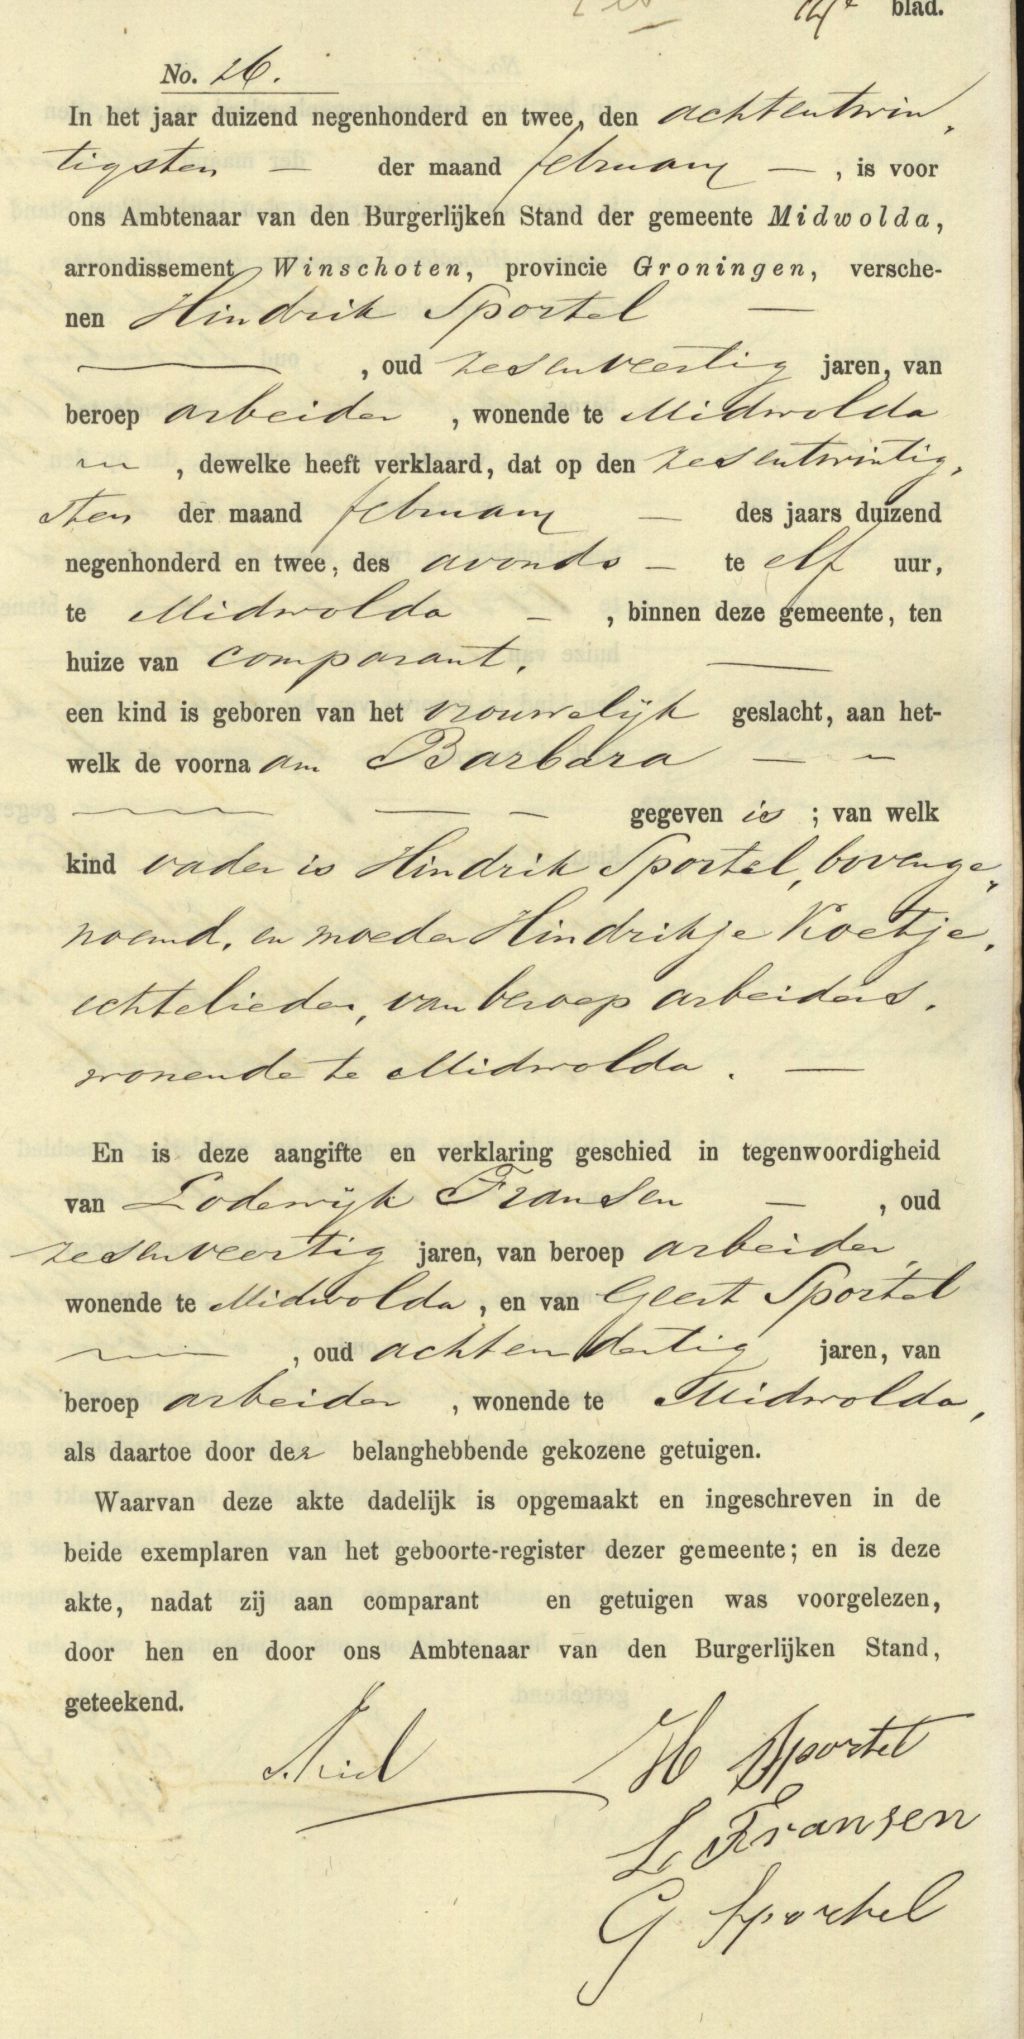 blad.
No. 26.
In het jaar duizend negenhonderd en twee, den achtentwin„
tigsten — der maand februarij —, is voor
ons Ambtenaar van den Burgerlijken Stand der gemeente Midwolda,
arrondissement Winschoten, provincie Groningen, versche-
nen Hindrik Sportel —
—, oud zesenveertig jaren, van
beroep arbeider, wonende te Midwolda
—, dewelke heeft verklaard, dat op den zesentwintig„
sten der maand februarij — des jaars duizend
negenhonderd en twee, des avonds — te elf uur,
te Midwolda —, binnen deze gemeente, ten
huize van comparant. —
een kind is geboren van het vrouwelijk geslacht, aan het-
welk de voornaam Barbara — —
— — — gegeven is ; van welk
kind vader is Hindrik Sportel, bovenge„
noemd, en moeder Hindrikje Koetje,
echtelieden, van beroep arbeiders,
wonende te Midwolda. —
En is deze aangifte en verklaring geschied in tegenwoordigheid
van Lodewijk Fransen —, oud
zesenveertig jaren, van beroep arbeider,
wonende te Midwolda, en van Geert Sportel
—, oud achtendertig jaren, van
beroep arbeider, wonende te Midwolda,
als daartoe door der belanghebbende gekozene getuigen.
Waarvan deze akte dadelijk is opgemaakt en ingeschreven in de
beide exemplaren van het geboorte-register dezer gemeente; en is deze
akte, nadat zij aan comparant en getuigen was voorgelezen,
door hen en door ons Ambtenaar van den Burgerlijken Stand,
geteekend.
H Sportel
L. Fransen
G Sportel